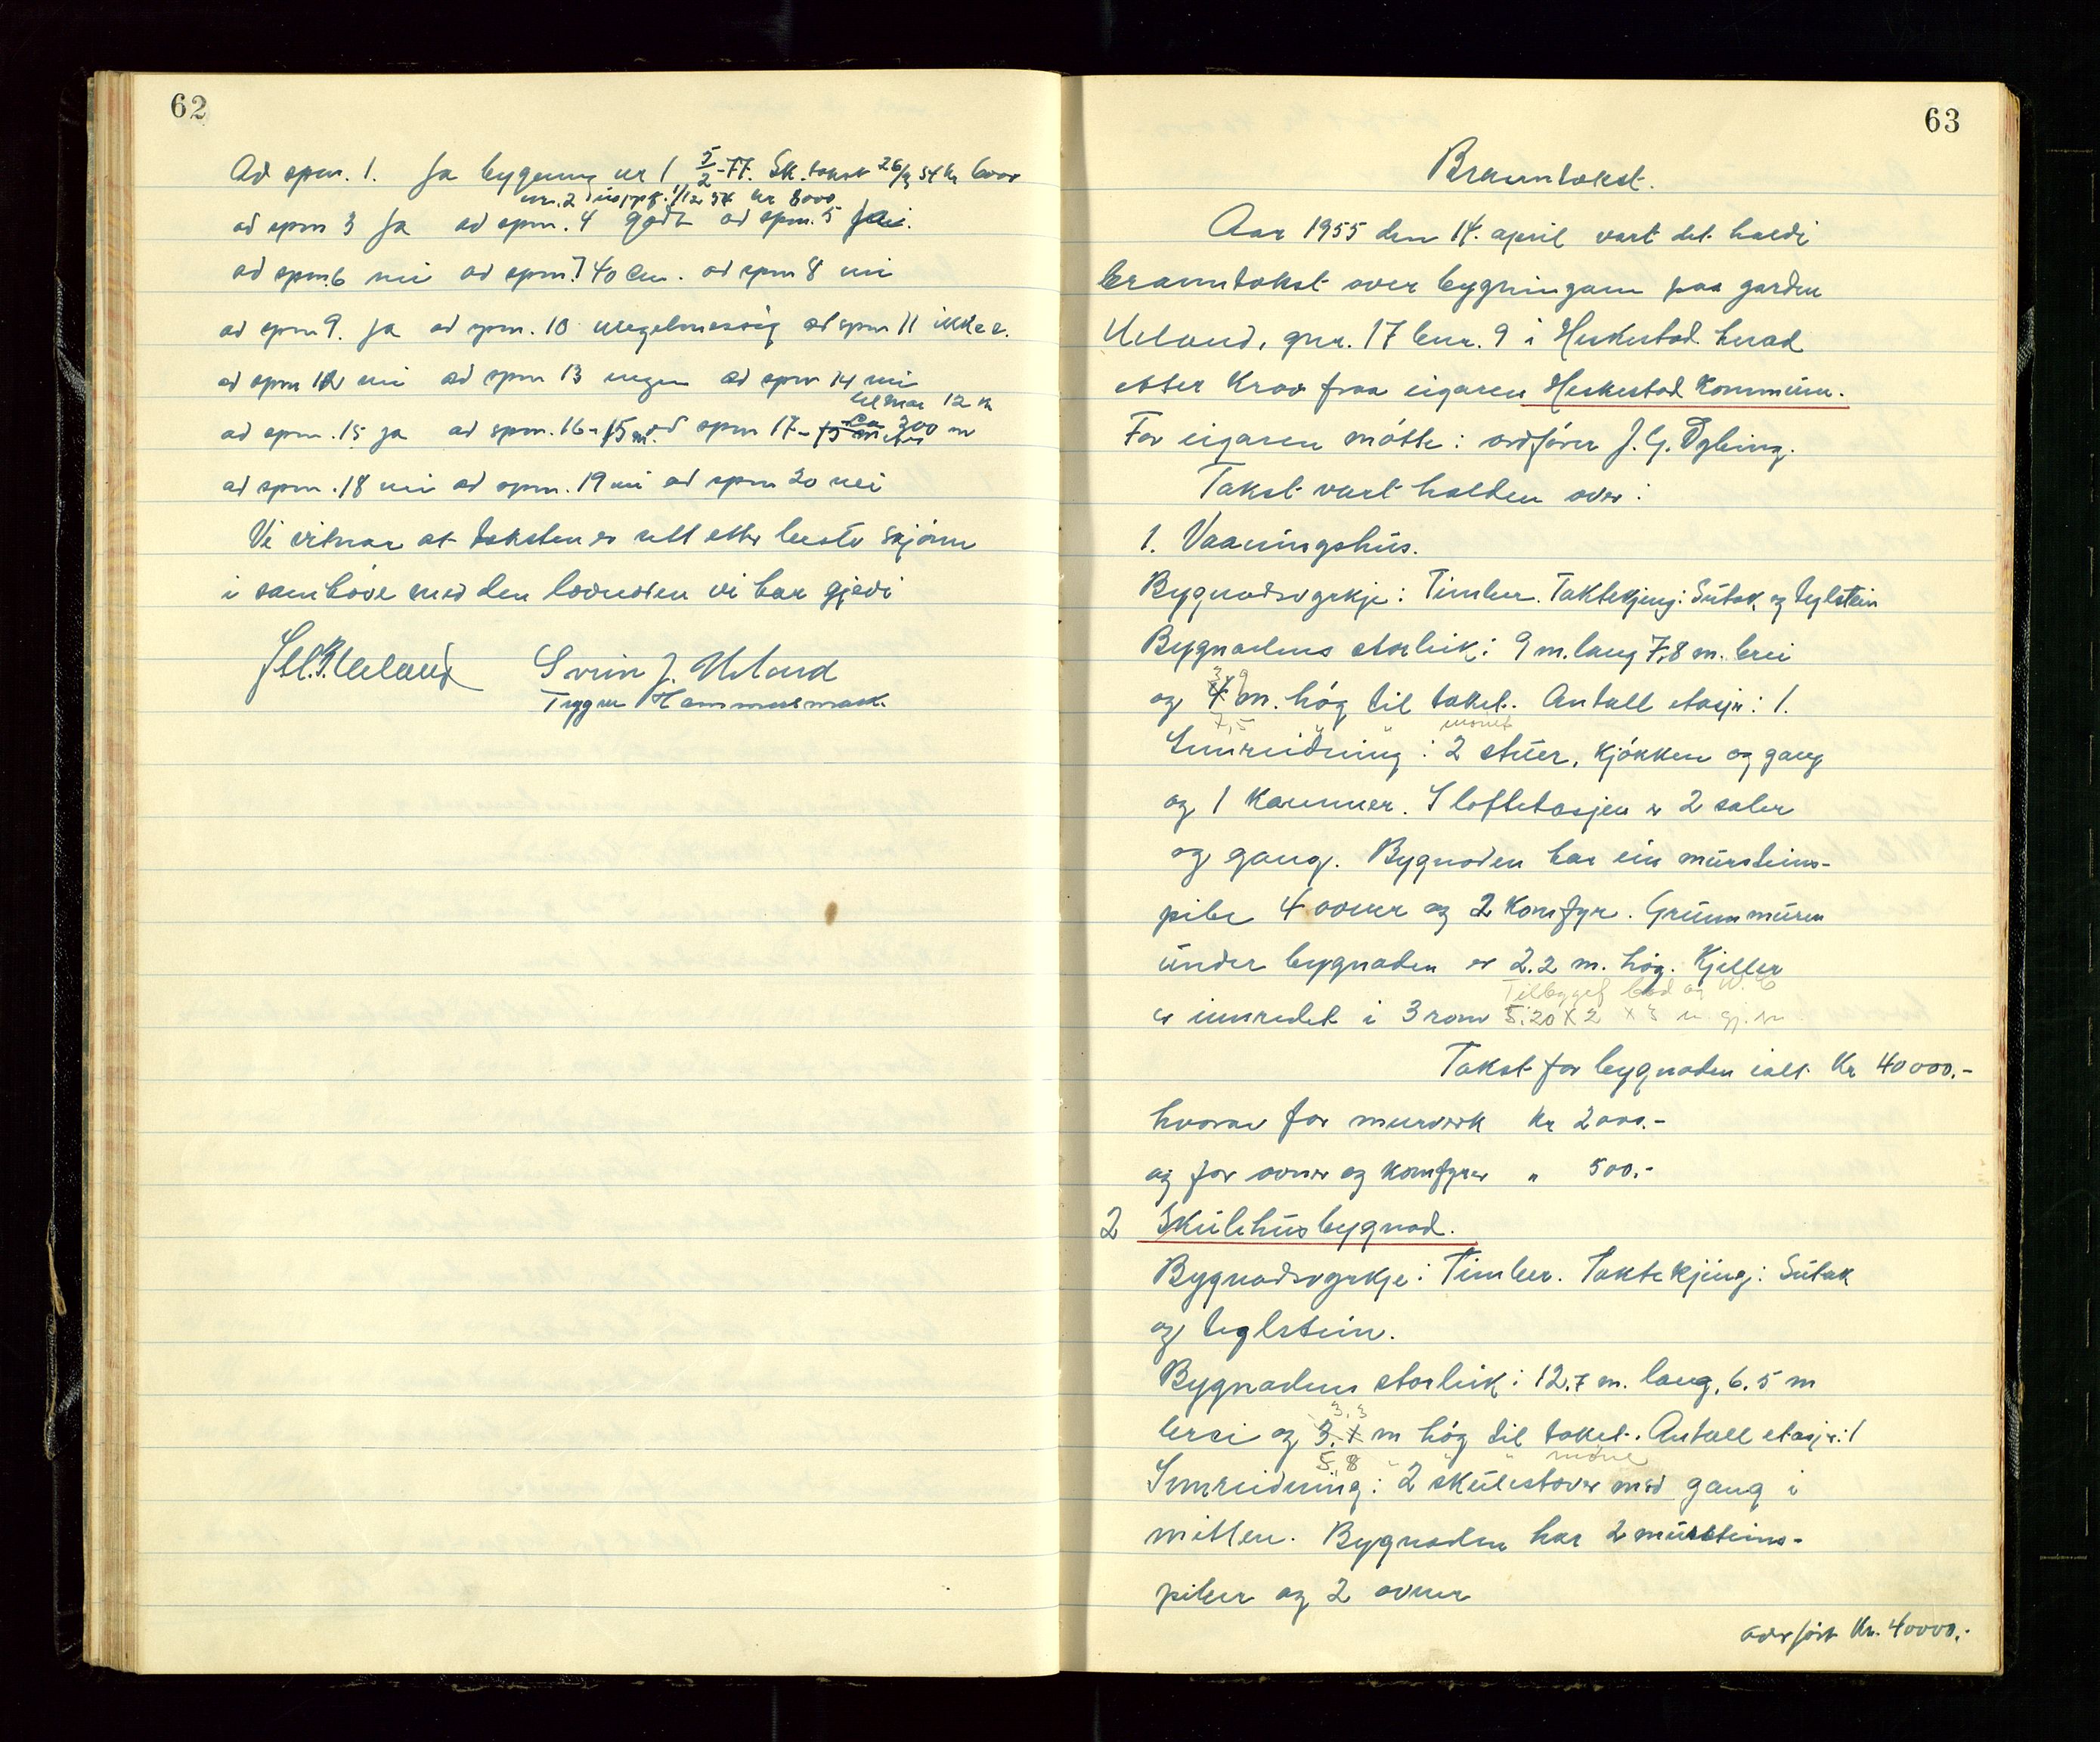 62
Ad spm. 1. Ja bygning nr 1 5/2-77. Sk.takst 26/3 54 kr 6000
nr. 2 1/12 54 kr 8000
ad spm 3 Ja ad spm. 4 godt ad spm. 5 Ja
ad spm. 6 nei ad spm. 7 40 cm. ad spm 8 nei
ad spm 9. Ja ad spm. 10 uregelmessig ad spm 11 ikke
ad spm 12 nei ad spm 13 ingen ad spm 14 nei
12 m
ad spm. 15 ja ad spm. 16 - 15 m. ad spm 17 - ca 300 m
ad spm. 18 nei ad spm. 19 nei ad spm 20 nei
Vi vitnar at taksten er sett etter beste skjønn
i samhøve med den lovnaden vi har gjevi
Ueland Svein J. Ueland
Trygve Hammersmark.
63
Branntakst.
Aar 1955 den 14. april vart det haldi
branntakst over bygningane paa garden
Ueland, gnr. 17 bnr. 9 i Heskestad herad
etter krav fraa eigaren Heskestad kommune.
For eigaren møtte: ordfører J. G. Øgleng.
Takst vart halden over:
1. Vaaningshus.
Bygnadsvyrkje: Timber. Taktekjing: Sutak og teglstein
Bygnadens storleik: 9 m. lang 7,8 m. brei
3,9
og 4 m. høg til taket. Antall etasjer: 1.
7,5 " " mønet
Innreidning: 2 stuer, kjøkken og gang
og 1 kammer. I loftetasjen er 2 saler
og gang. Bygnaden har ein mursteins-
pibe 4 ovner og 2 komfyr. Grunnmuren
under bygnaden er 2.2 m. høg. Kjeller
Tilbygget bad og W.C
er innredet i 3 rom 5.20 x 2 x 3 m gj.m
Takst for bygnaden ialt kr 40000.-
hvorav for murverk kr 2000.-
og for ovner og komfyrer " 500.-
2 Skulehusbygnad.
Bygnadsvyrkje: Timber. Taktekjing: Sutak
og teglstein.
Bygnadens storleik: 12.7 m. lang, 6.5 m
3,3
brei og 3. m høg til taket. Antall etasjer: 1
5,8 " " " møne
Innreidning: 2 skulestover med gang i
mitten. Bygnaden har 2 mursteins-
piber og 2 ovner
overført kr. 40000.-